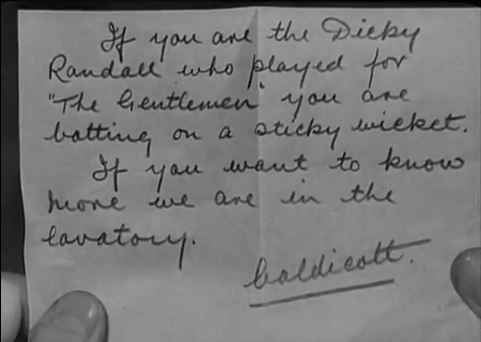 If you are the Dicky
Randall who played for
"The Gentlemen" you are
batting on a sticky wicket.
If you want to know
more we are in the
lavatory.
Caldicott.